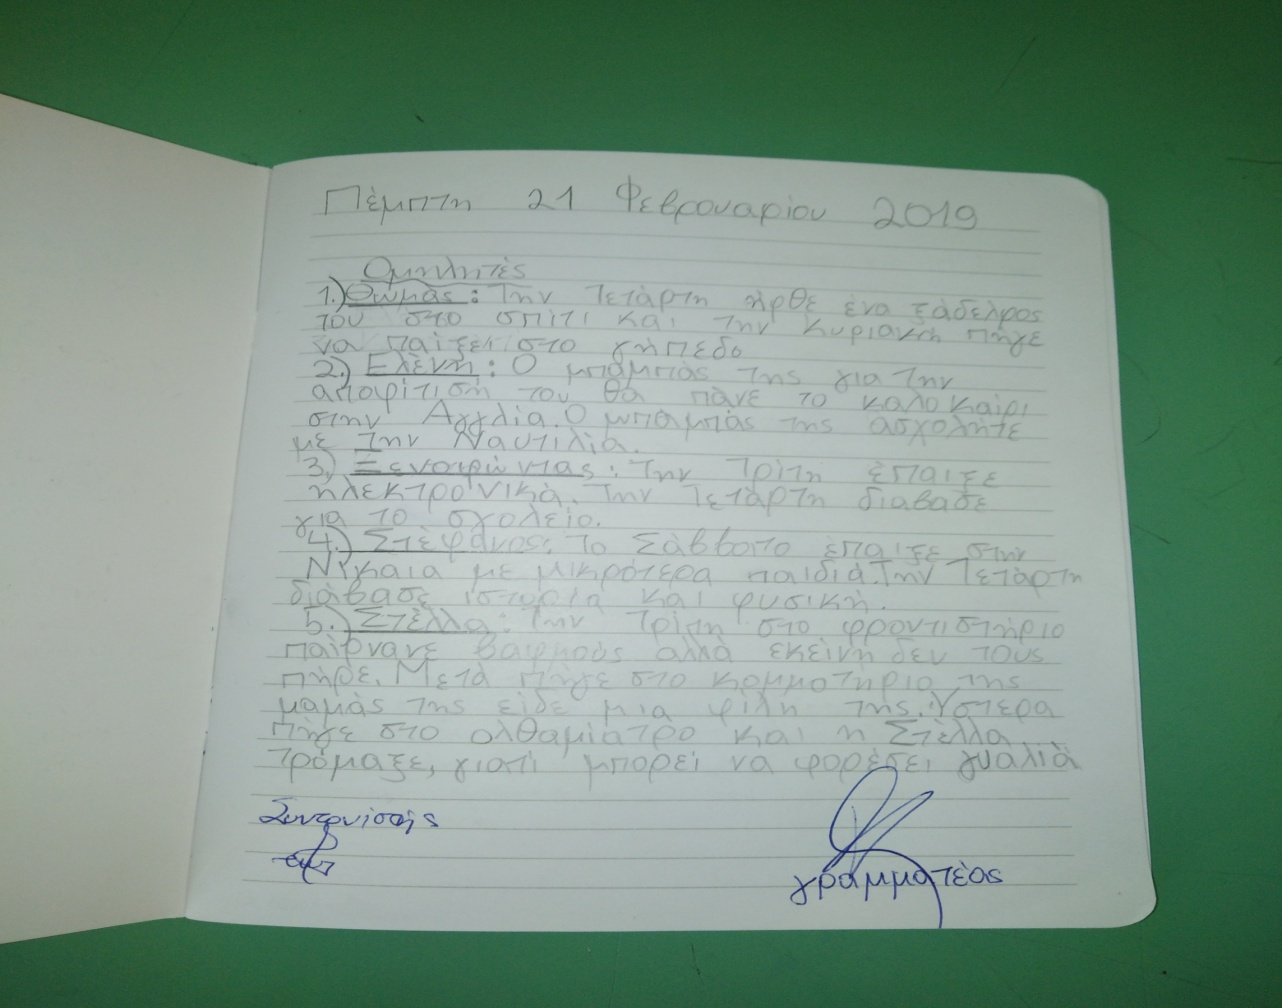 Πέμπτη 21 Φεβρουαρίου 2019
Ομηλητές
1.) Θωμάς: Την Τετάρτη ήρθε ένα ξάδελρος
του στο σπίτι και την Κυριακή πήγε
να παίξει στο γήπεδο
2.) Ελένη: Ο μπαμπάς της για την
αποφίτισή του θα πάνε το καλοκαίρι
στην Αγγλία. Ο μπαμπάς της ασχολήτε
με την Ναυτιλία.
3.) Ξενοφώντας: Την Τρίτη έπαιξε
ηλεκτρονικά. Την Τετάρτη διάβασε
για το σχολείο.
4.) Στέφανος: Το Σάββατο έπαιξε στην
Νίκαια με μικρότερα παιδιά. Την Τετάρτη
διάβασε ιστορία και φυσική.
5.) Στέλλα: Την Τρίτη στο φροντιστήριο
παίρνανε βαθμούς αλλά εκείνη δεν τους
πήρε. Μετά πήγε στο κομμοτήριο της
μαμάς της είδε μια φίλη της. Υστερα
πήγε στο ολθαμίατρο και η Στέλλα
τρόμαξε, γιατί μπορεί να φορέσει γυαλιά
Συντονιστής
γραμματέας